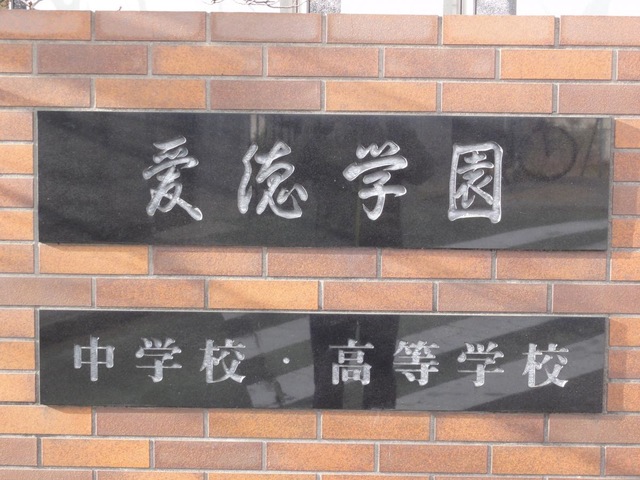 愛徳学園
中学校・高等学校